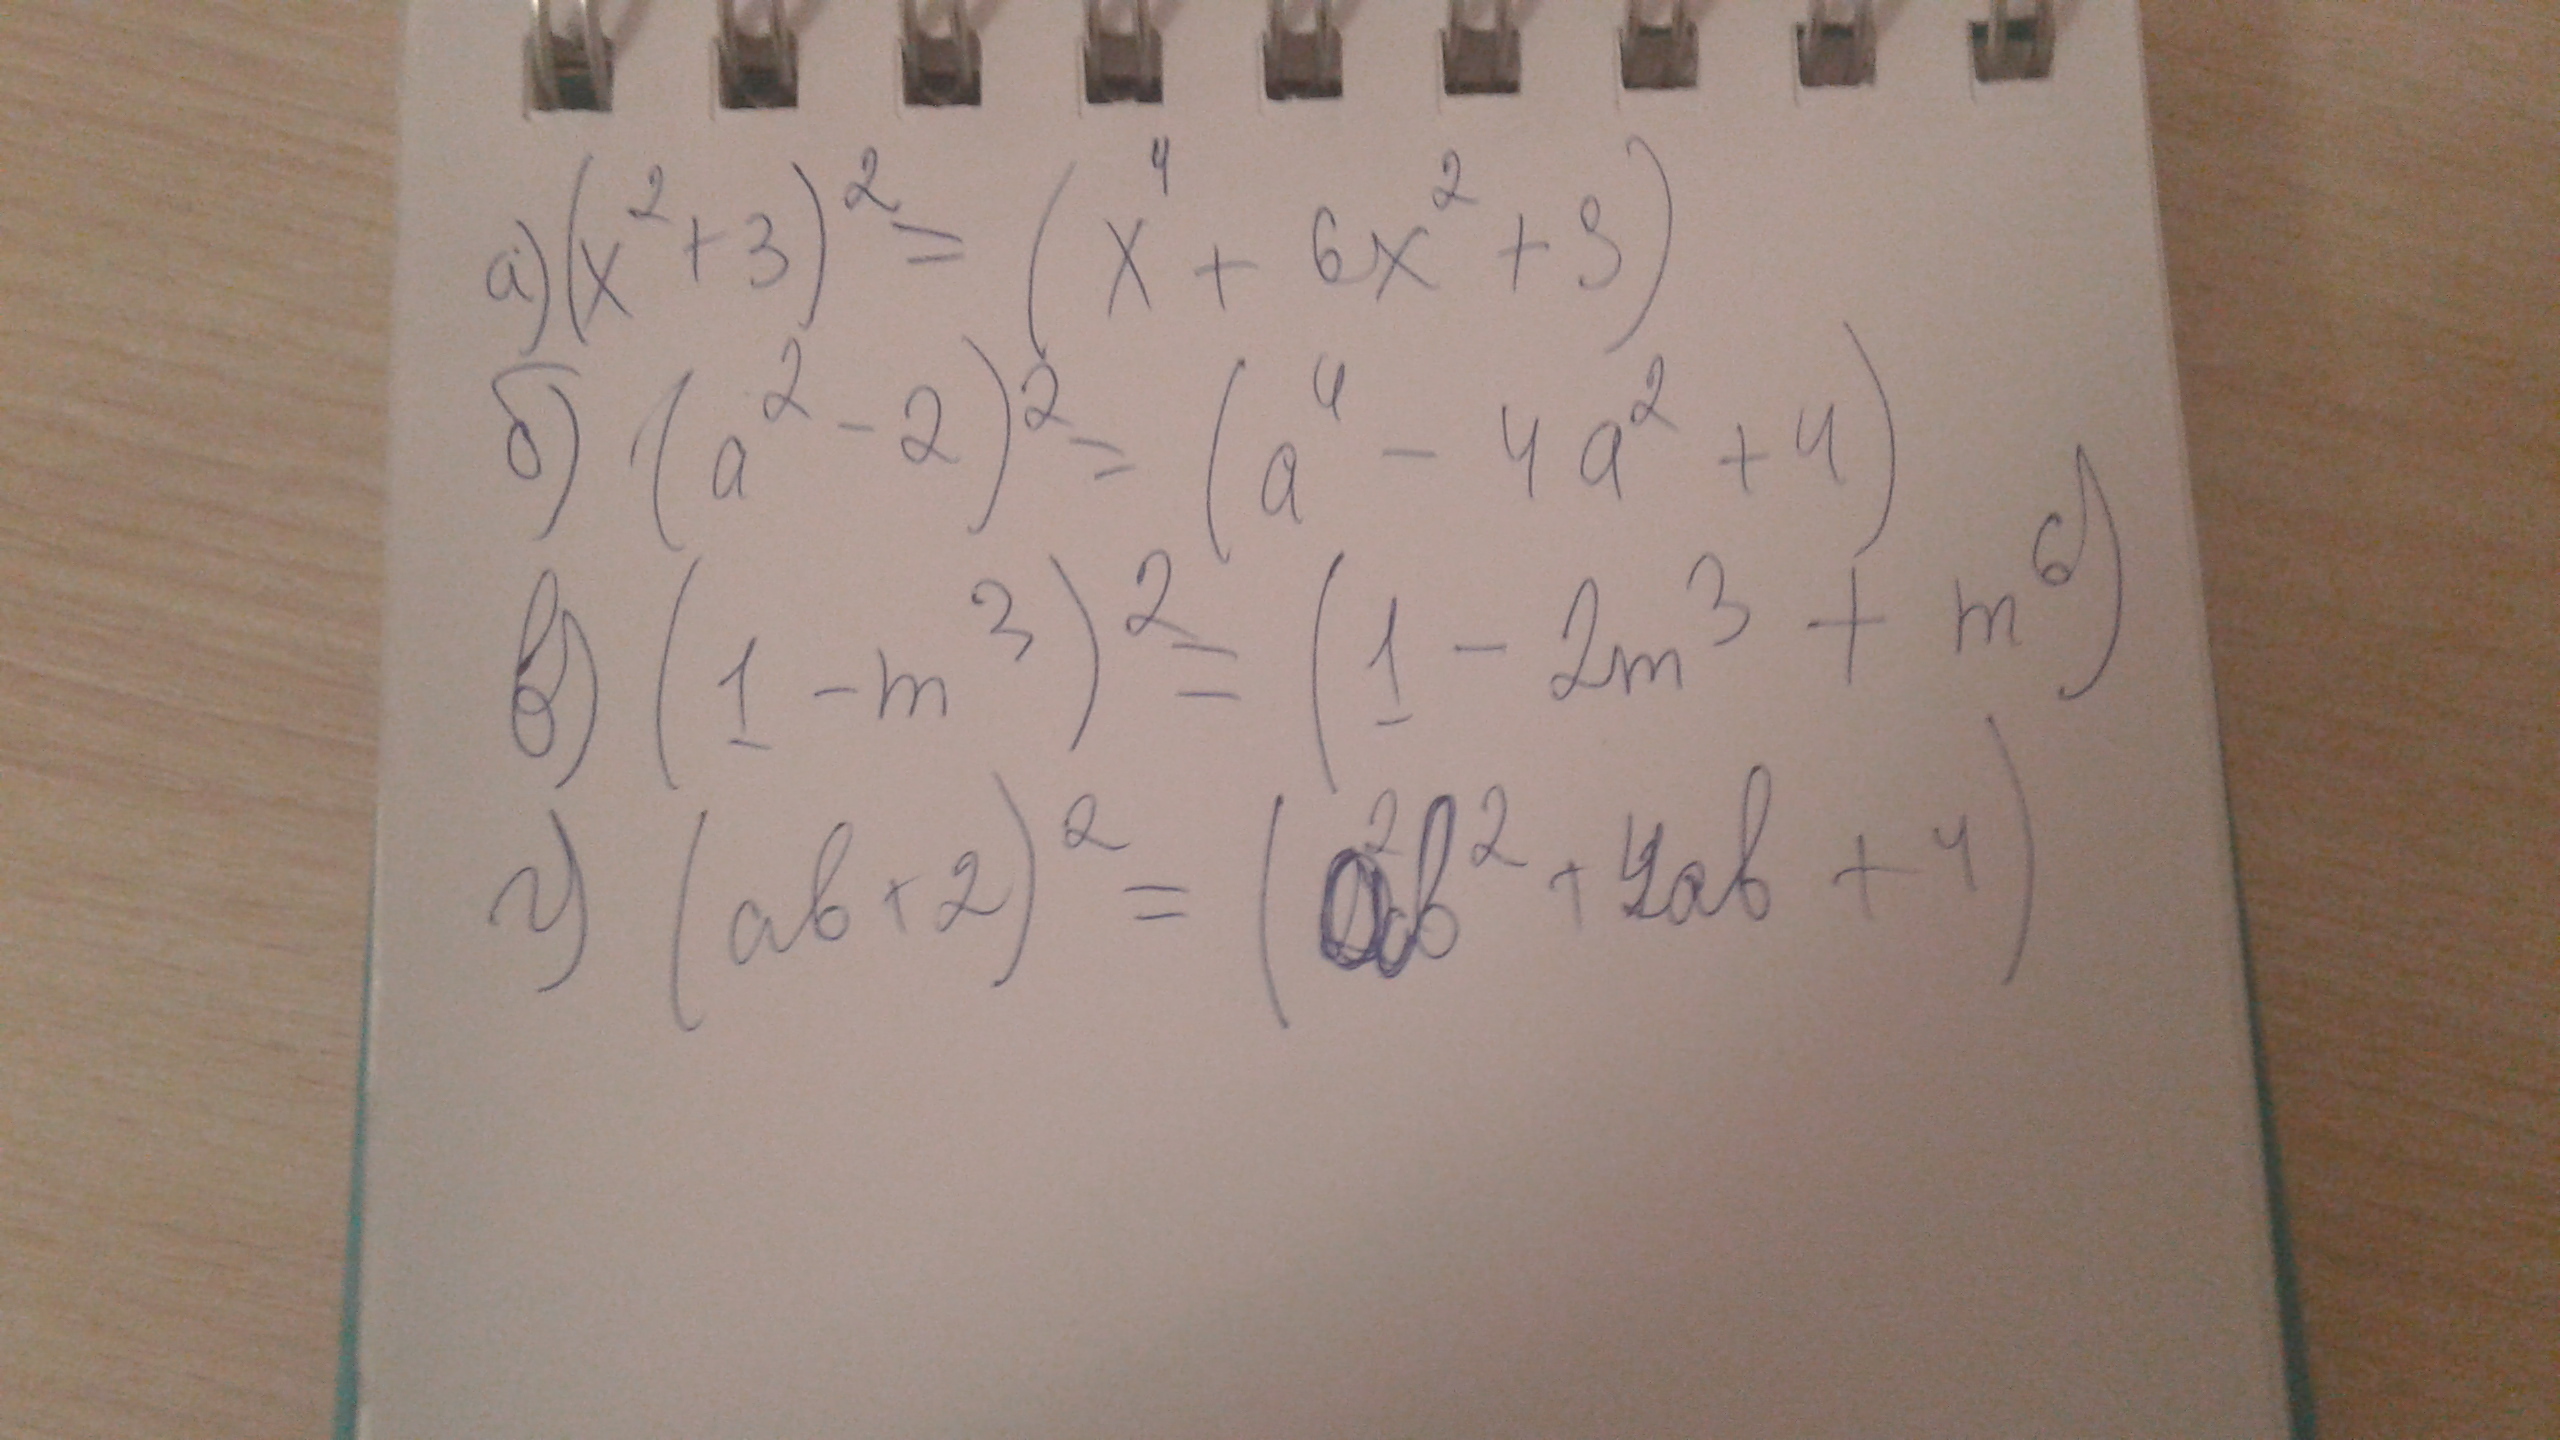 а) (x² + 3)² = (x⁴ + 6x² + 9)
б) (a² - 2)² = (a⁴ - 4a² + 4)
в) (1 - m³)² = (1 - 2m³ + m⁶)
г) (ab + 2)² = (a²b² + 4ab + 4)